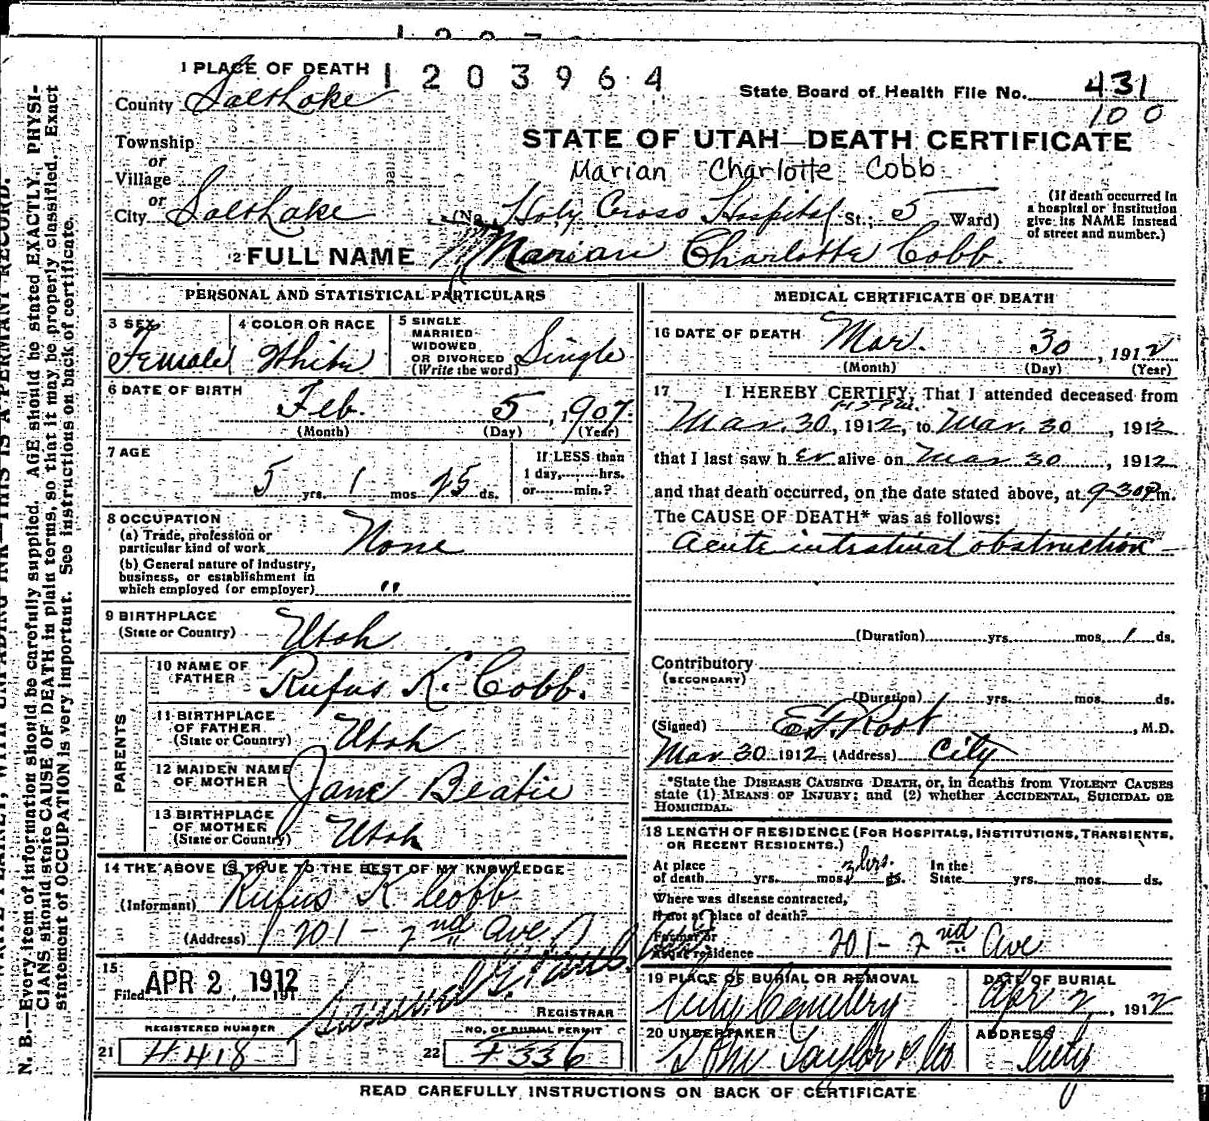 1 PLACE OF DEATH 1203964
County Salt Lake
State Board of Health File No. 431
100
Township
or
Village
or
City Salt Lake
STATE OF UTAH—DEATH CERTIFICATE
Marian Charlotte Cobb
Holy Cross Hospital St.; 5 Ward)
(If death occurred in a hospital or institution give its NAME instead of street and number.)
2 FULL NAME Marian Charlotte Cobb
PERSONAL AND STATISTICAL PARTICULARS
3 SEX Female
4 COLOR OR RACE White
5 SINGLE MARRIED WIDOWED OR DIVORCED (Write the word) Single
6 DATE OF BIRTH Feb. 5, 1907
(Month) (Day) (Year)
7 AGE
5 yrs. 1 mos. 25 ds.
If LESS than 1 day,........hrs. or........min.?
8 OCCUPATION
(a) Trade, profession or particular kind of work None
(b) General nature of industry, business, or establishment in which employed (or employer) "
9 BIRTHPLACE (State or Country) Utah
PARENTS
10 NAME OF FATHER Rufus K. Cobb.
11 BIRTHPLACE OF FATHER (State or Country) Utah
12 MAIDEN NAME OF MOTHER Jane Beatie
13 BIRTHPLACE OF MOTHER (State or Country) Utah
14 THE ABOVE IS TRUE TO THE BEST OF MY KNOWLEDGE
(Informant) Rufus K Cobb
(Address) 201 - 2nd Ave
15
Filed APR 2, 1912 191
REGISTRAR
REGISTERED NUMBER
21
NO. OF BURIAL PERMIT
22
MEDICAL CERTIFICATE OF DEATH
16 DATE OF DEATH Mar. 30, 1912
(Month) (Day) (Year)
17 I HEREBY CERTIFY, That I attended deceased from
Mar. 30, 1912, to Mar. 30, 1912
that I last saw h er alive on Mar 30, 1912
and that death occurred, on the date stated above, at 9-30 P m.
The CAUSE OF DEATH* was as follows:
Acute intestinal obstruction
(Duration) yrs. mos. 1 ds.
Contributory (SECONDARY)
(Duration) yrs. mos. ds.
(Signed) E F Root, M.D.
Mar 30 1912 (Address) City
*State the DISEASE CAUSING DEATH, or, in deaths from VIOLENT CAUSES state (1) MEANS OF INJURY; and (2) whether ACCIDENTAL, SUICIDAL OR HOMICIDAL.
18 LENGTH OF RESIDENCE (FOR HOSPITALS, INSTITUTIONS, TRANSIENTS, OR RECENT RESIDENTS.)
At place of death yrs. mos. 3 hrs. ds. In the State yrs. mos. ds.
Where was disease contracted,
if not at place of death?
Former or usual residence 201 - 2nd Ave
19 PLACE OF BURIAL OR REMOVAL City Cemetery
DATE OF BURIAL Apr 2, 1912
20 UNDERTAKER
Taylor & Co
ADDRESS City
READ CAREFULLY INSTRUCTIONS ON BACK OF CERTIFICATE
THIS IS A PERMANT RECORD.
N. B.—Every item of information should be carefully supplied. AGE should be stated EXACTLY. PHYSI-
CIANS should state CAUSE OF DEATH in plain terms, so that it may be properly classified. Exact
statement of OCCUPATION is very important. See instructions on back of certificate.